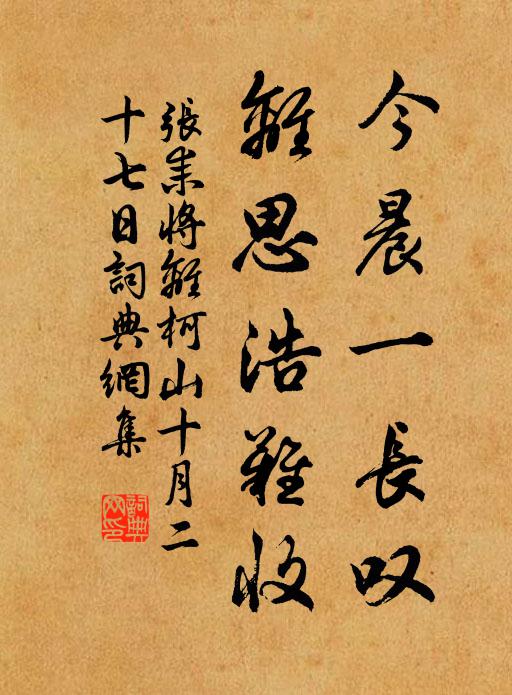 今晨一長叹
離思浩難收
張耒將離柯山十月二
十七日詞典網集
詞典
网印